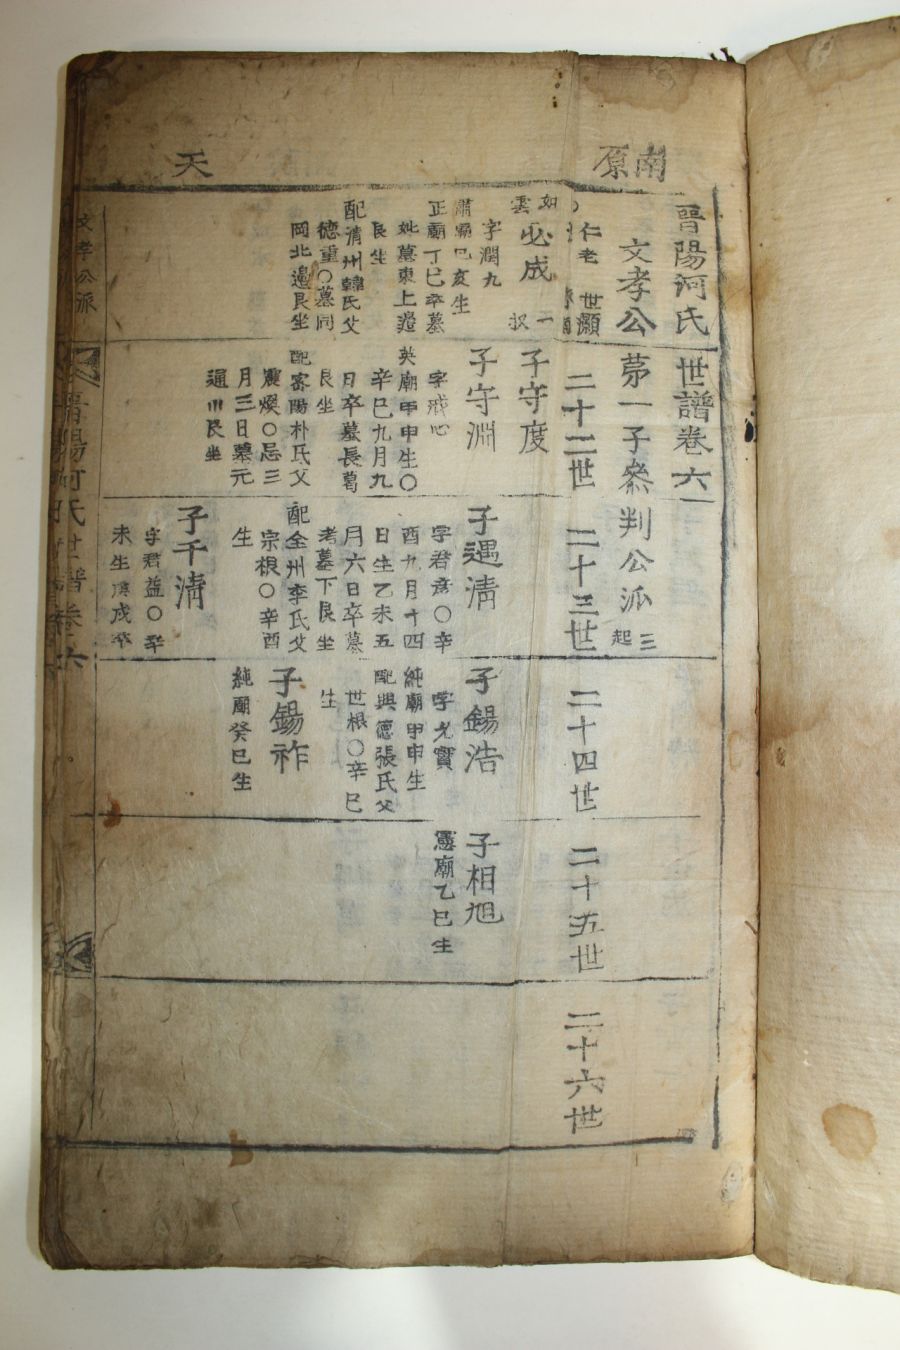 南原
天
晋陽河氏世譜卷六
文孝公第一子叅判公派
三
起
仁老
世灝
二十二世
二十三世
二十四世
二十五世
二十六世
如
雲
必成
一
字潤九
肅廟己亥生
正廟丁巳卒墓
妣墓東上邉
艮生
配清州韓氏父
德重〇墓同
岡北邉艮坐
子守度
子守淵
字戒心
英廟甲申生〇
辛巳九月九
日卒墓長葛
艮坐
配密陽朴氏父
震燦〇忌三
月三日墓元
通川艮坐
子遇清
字君彦〇辛
酉九月十四
日生乙未五
月六日卒墓
考墓下艮坐
配全州李氏父
宗根〇辛酉
生
子千清
字君益〇辛
未生庚戌卒
子錫浩
字允實
純廟甲申生
配興德張氏父
世根〇辛巳
生
子錫祚
純廟癸巳生
子相旭
憲廟乙巳生
文孝公派
晋陽河氏世譜卷六